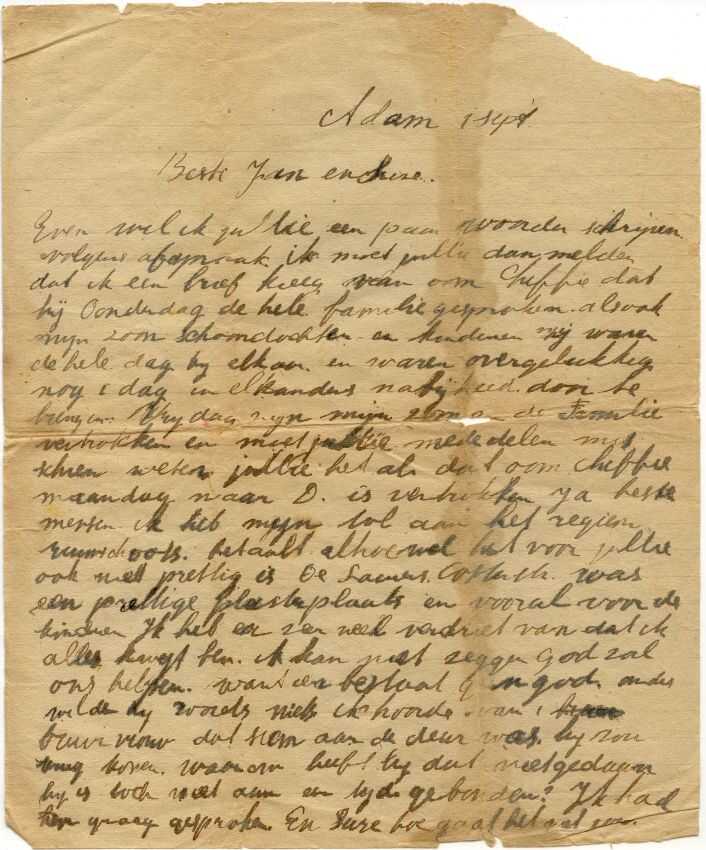 Adam 1 sept
Beste Jan en
Even wil ik jullie een paar woorden schrijven
volgens afspraak ik moet jullie dan melden
dat ik een brief kreeg van oom Cheffie dat
hij Donderdag de hele familie gesproken. alsook
mijn zoon schoondochter en kinderen zij waren
de hele dag bij elkaar en waren overgelukkig
nog 1 dag in elkanders nabijheid door te
brengen. Vrijdag zijn mijn zoon en de Familie
vertrokken en moet jullie mededelen mis
schien weten jullie het al dat oom Cheffie
maandag naar D. is vertrokken Ja beste
mensen ik heb mijn tol aan het regiem
ruimschoots betaalt alhoewel het voor jullie
ook niet prettig is De was
een prettige plaats en vooral voor de
kinderen Ik heb er zeer veel verdriet van dat ik
alles kwijt ben. ik kan niet zeggen God zal
ons helpen. want er bestaat geen god. anders
wilde hij zoiets niet ik hoorde van 1
buurvrouw dat Siem aan de deur was. hij zou
terug komen. waarom heeft hij dat niet gedaan
hij is toch niet aan een tijd gebonden? Ik had
hem graag gesproken. En hoe gaat het met jou.